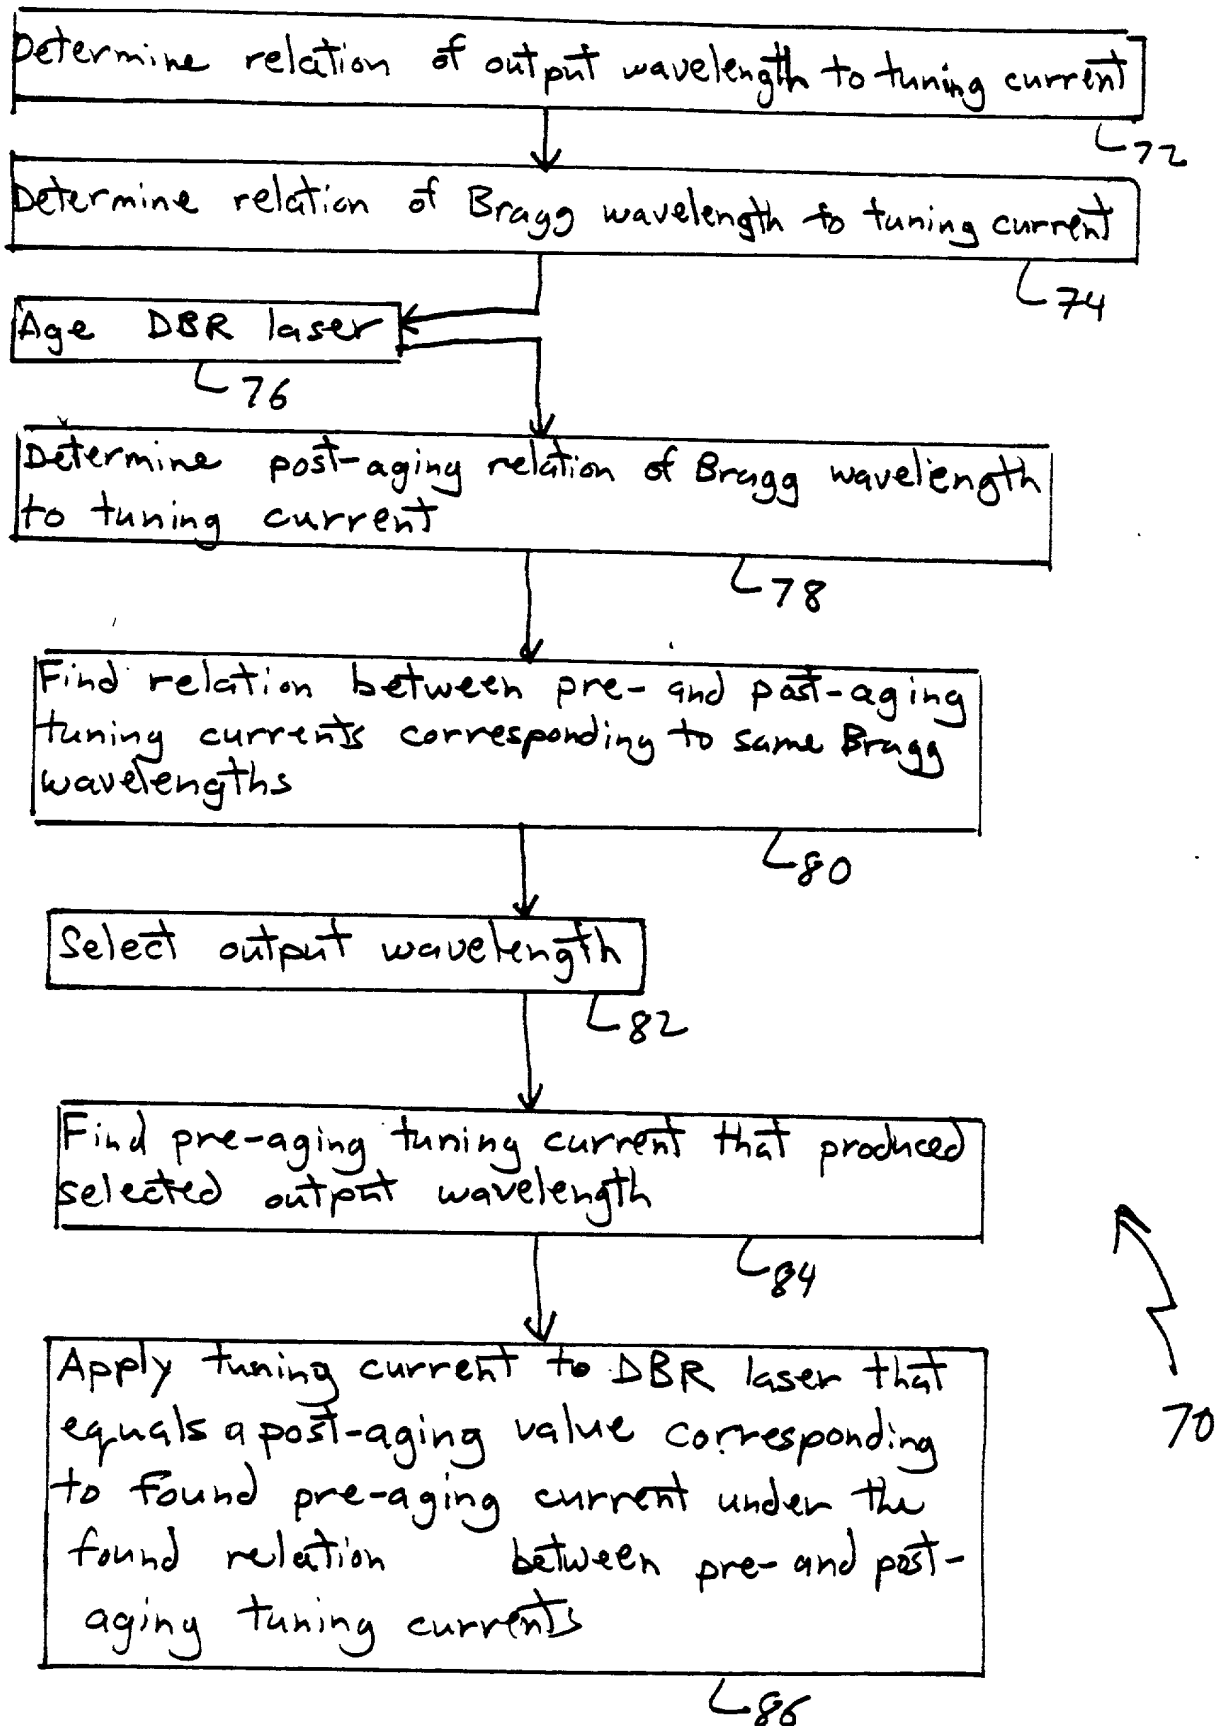 Determine relation of output wavelength to tuning current
72
Determine relation of Bragg wavelength to tuning current
74
Age DBR laser
76
Determine post-aging relation of Bragg wavelength
to tuning current
78
Find relation between pre- and post-aging
tuning currents corresponding to same Bragg
wavelengths
80
Select output wavelength
82
Find pre-aging tuning current that produced
selected output wavelength
84
Apply tuning current to DBR laser that
equals a post-aging value corresponding
to found pre-aging current under the
found relation between pre- and post-
aging tuning currents
86
70